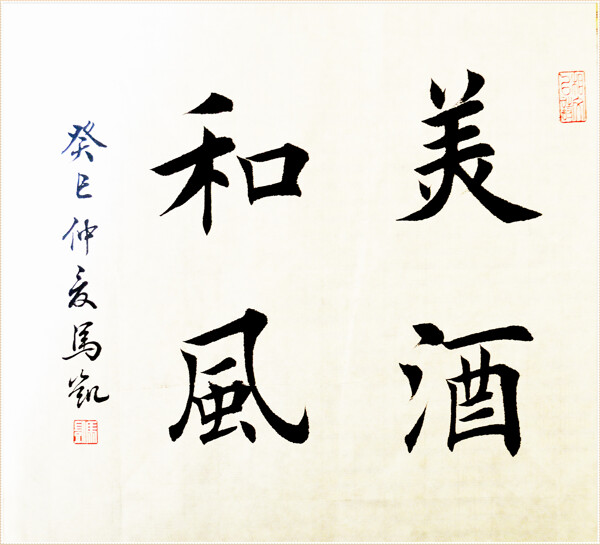 美酒
和風
癸巳仲夏馬凱